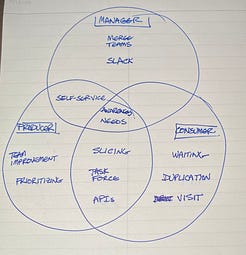 MANAGER
MERGE
TEAMS
SLACK
SELF-SERVICE
AWARENESS
NEEDS
PRODUCER
CONSUMER
TEAM
IMPROVEMENT
PRIORITIZING
SLICING
TASK
FORCE
APIs
WAITING
DUPLICATION
VISIT